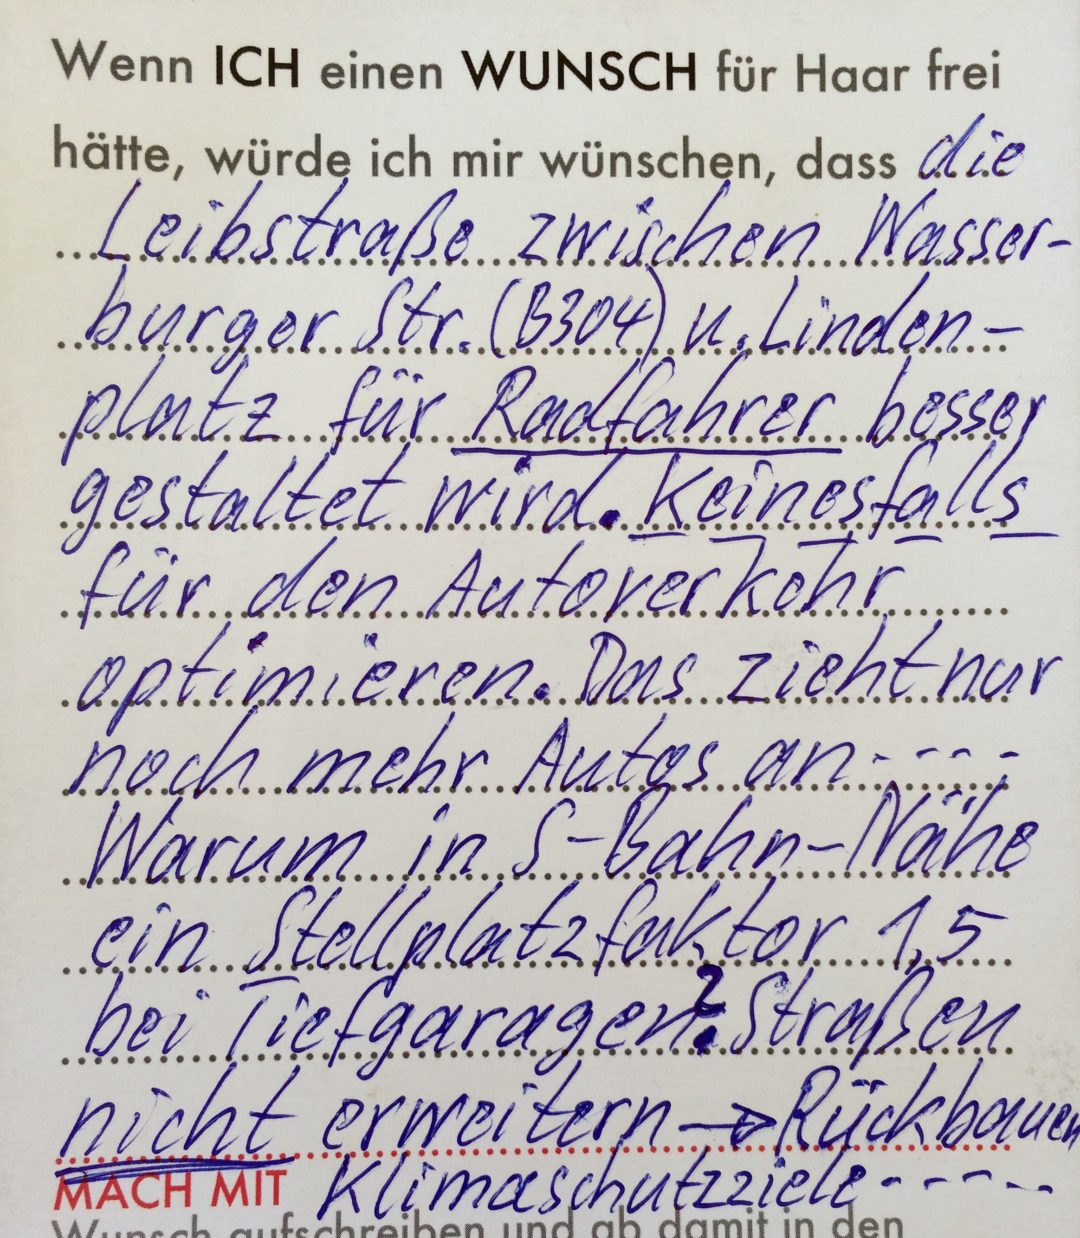 Wenn ICH einen WUNSCH für Haar frei
hätte, würde ich mir wünschen, dass die
Leibstraße zwischen Wasser-
burger Str. (B304) u. Linden-
platz für Radfahrer besser
gestaltet wird. Keinesfalls
für den Autoverkehr
optimieren. Das zieht nur
noch mehr Autos an - - - -
Warum in S-Bahn-Nähe
ein Stellplatzfaktor 1,5
bei Tiefgaragen? Straßen
nicht erweitern → Rückbauen
MACH MIT Klimaschutzziele - - - - -
Wunsch aufschreiben und ab damit in den